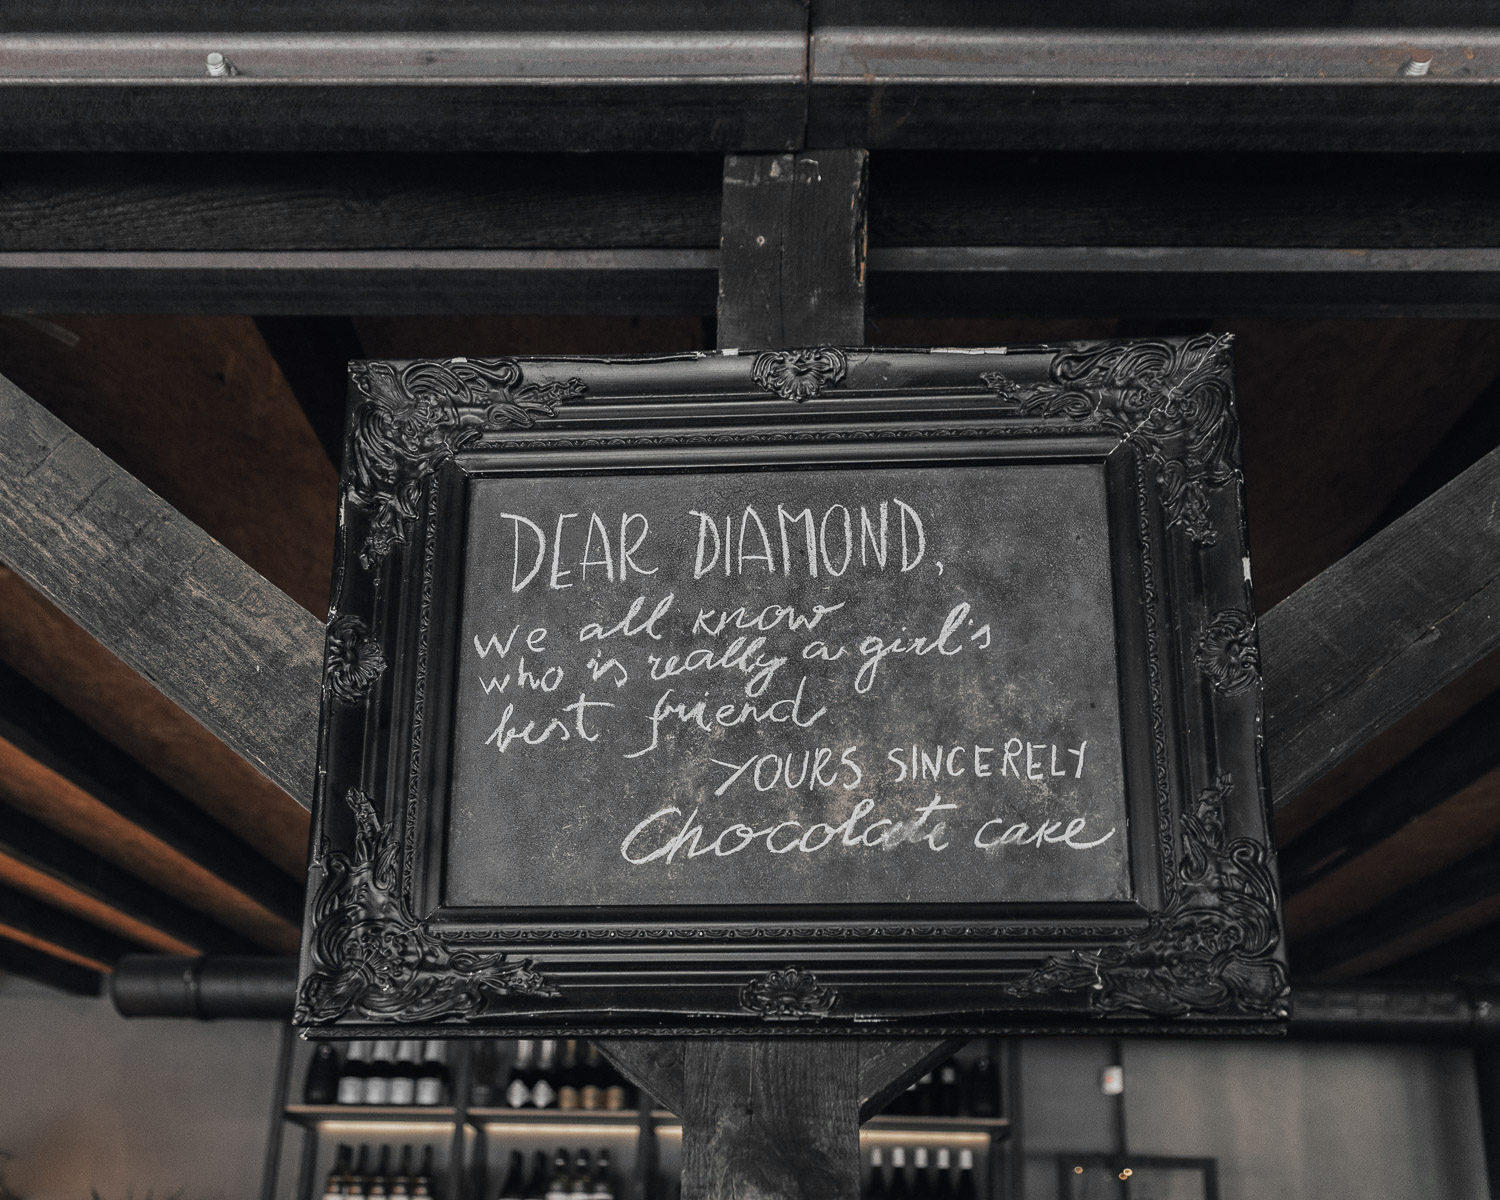 DEAR DIAMOND,
we all know
who is really a girl's
best friend
YOURS SINCERELY
Chocolate cake